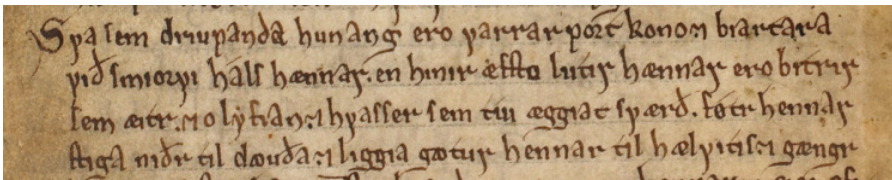 Sva sem driupanda hunang ero varrar port kono⁊ biartara
við smiorvi hals hænnar. en hinir æfsto lutir hænnar ero bitrir
sem æitr.⁊ olyfian⁊ hvasser sem tvi æggiat sværð. føtr hennar
stiga niðr til dauða⁊ liggia gøtur hennar til hælvitis⁊ gængr